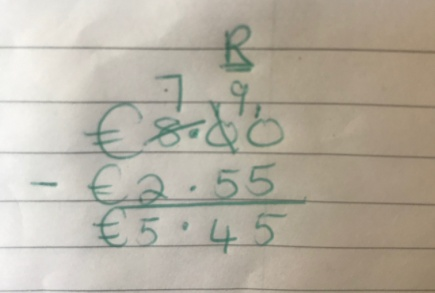 R
7 9 1
€8.00
- €2.55
€5.45